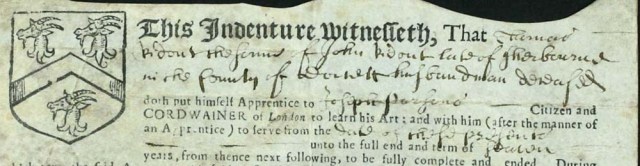 This Indenture Witnesseth, That Thomas
Ridout the sonne of John Ridout late of Sherbourne
in the County of Dorsett husbandman deceased
doth put himself Apprentice to Joseph Parsons Citizen and
CORDWAINER of London to learn his Art; and with him (after the manner of
an Apprentice) to serve from the date of these presents
unto the full end and term of seaven
years, from thence next following, to be fully complete and ended. During